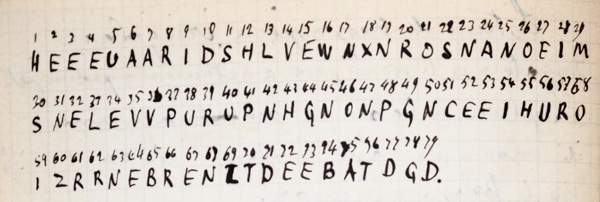 1 2 3 4 5 6 7 8 9 10 11 12 13 14 15 16 17 18 19 20 21 22 23 24 25 26 27 28 29
H E E E U A A R I D S H L V E W N X N R O S N A N O E I M
30 31 32 33 34 35 36 37 38 39 40 41 42 43 44 45 46 47 48 49 50 51 52 53 54 55 56 57 58
S N E L E V V P U R U P N H G N O N P G N C E E I H U R O
59 60 61 62 63 64 65 66 67 68 69 70 71 72 73 74 75 76 77 78 79
I Z R R N E B R E N Z T D E E B A T D G D.